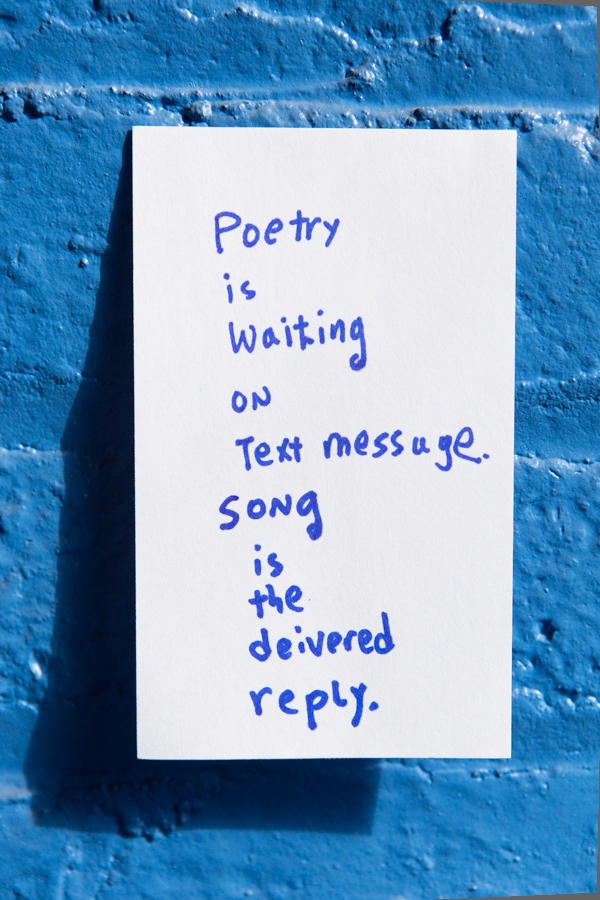 Poetry
is
Waiting
ON
Text message.
SONG
is
the
deivered
reply.